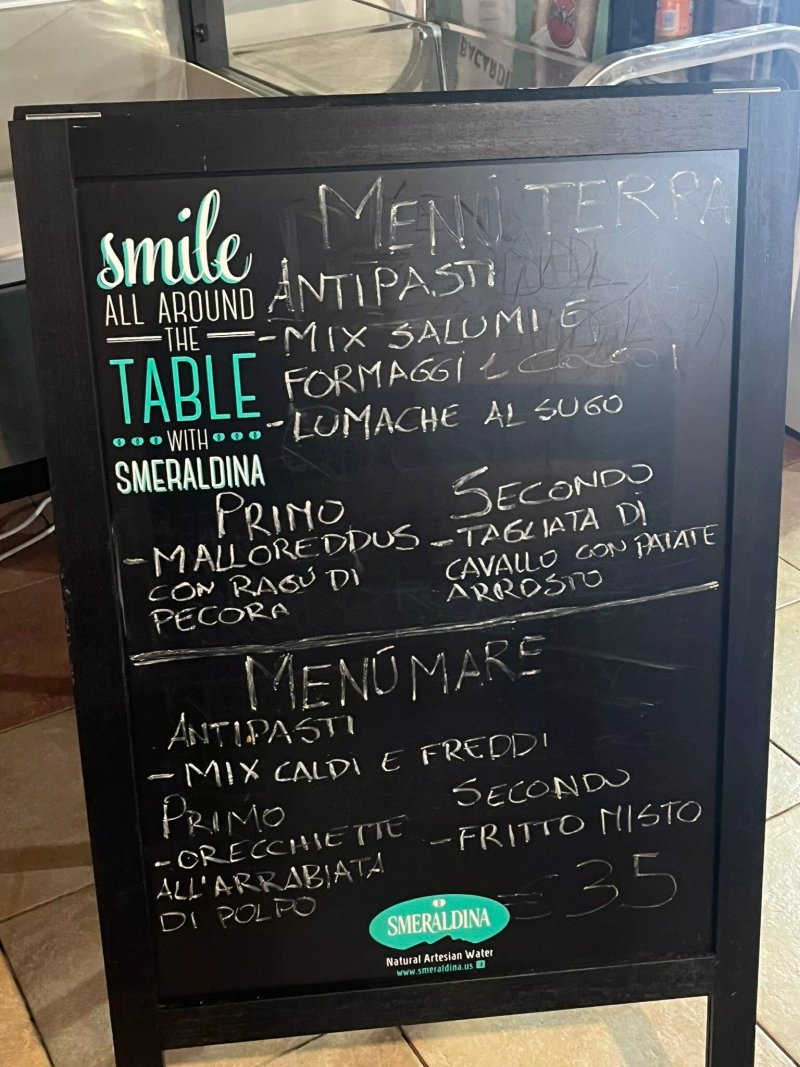 BACARDI
smile
ALL AROUND
THE
TABLE
WITH
SMERALDINA
MENÚ TERRA
ANTIPASTI
- MIX SALUMI E
FORMAGGI
- LUMACHE AL SUGO
PRIMO
- MALLOREDDUS
CON RAGÚ DI
PECORA
SECONDO
- TAGLIATA DI
CAVALLO CON PATATE
ARROSTO
MENÚ MARE
ANTIPASTI
- MIX CALDI E FREDDI
PRIMO
- ORECCHIETTE
ALL'ARRABIATA
DI POLPO
SECONDO
- FRITTO MISTO
€ 35
SMERALDINA
Natural Artesian Water
www.smeraldina.us